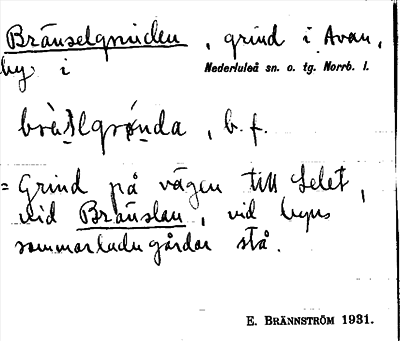 Bränselgrinden, grind i Avan,
by i Nederluleå sn. o. tg. Norrb. l.
bräs̱lgrønda, b. f.
= Grind på vägen till Selet,
vid Bräuslan, vid byns
sommarladugårdar stå.
E. BRÄNNSTRÖM 1931.